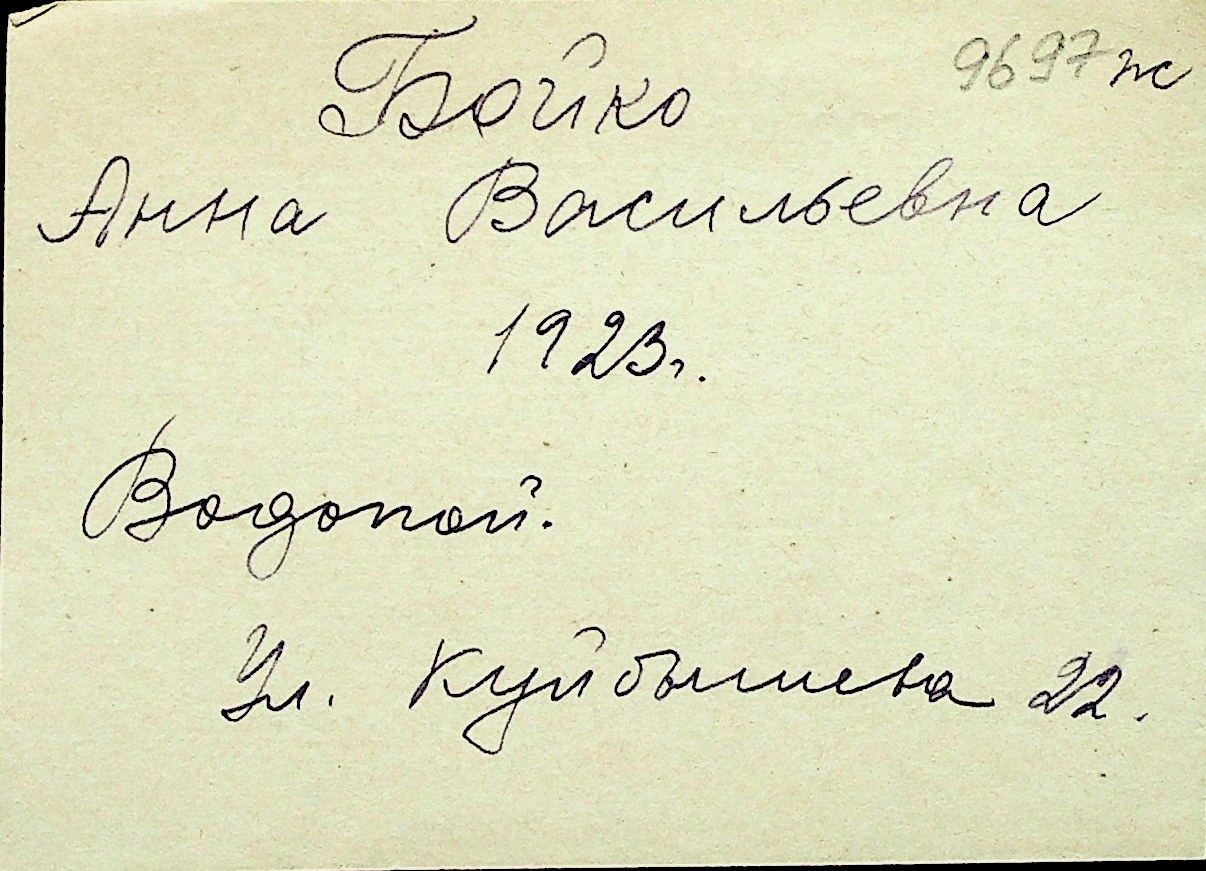 9697 ж
Бойко
Анна Васильевна
1923г.
Водопой.
Ул. Куйбышева 22.